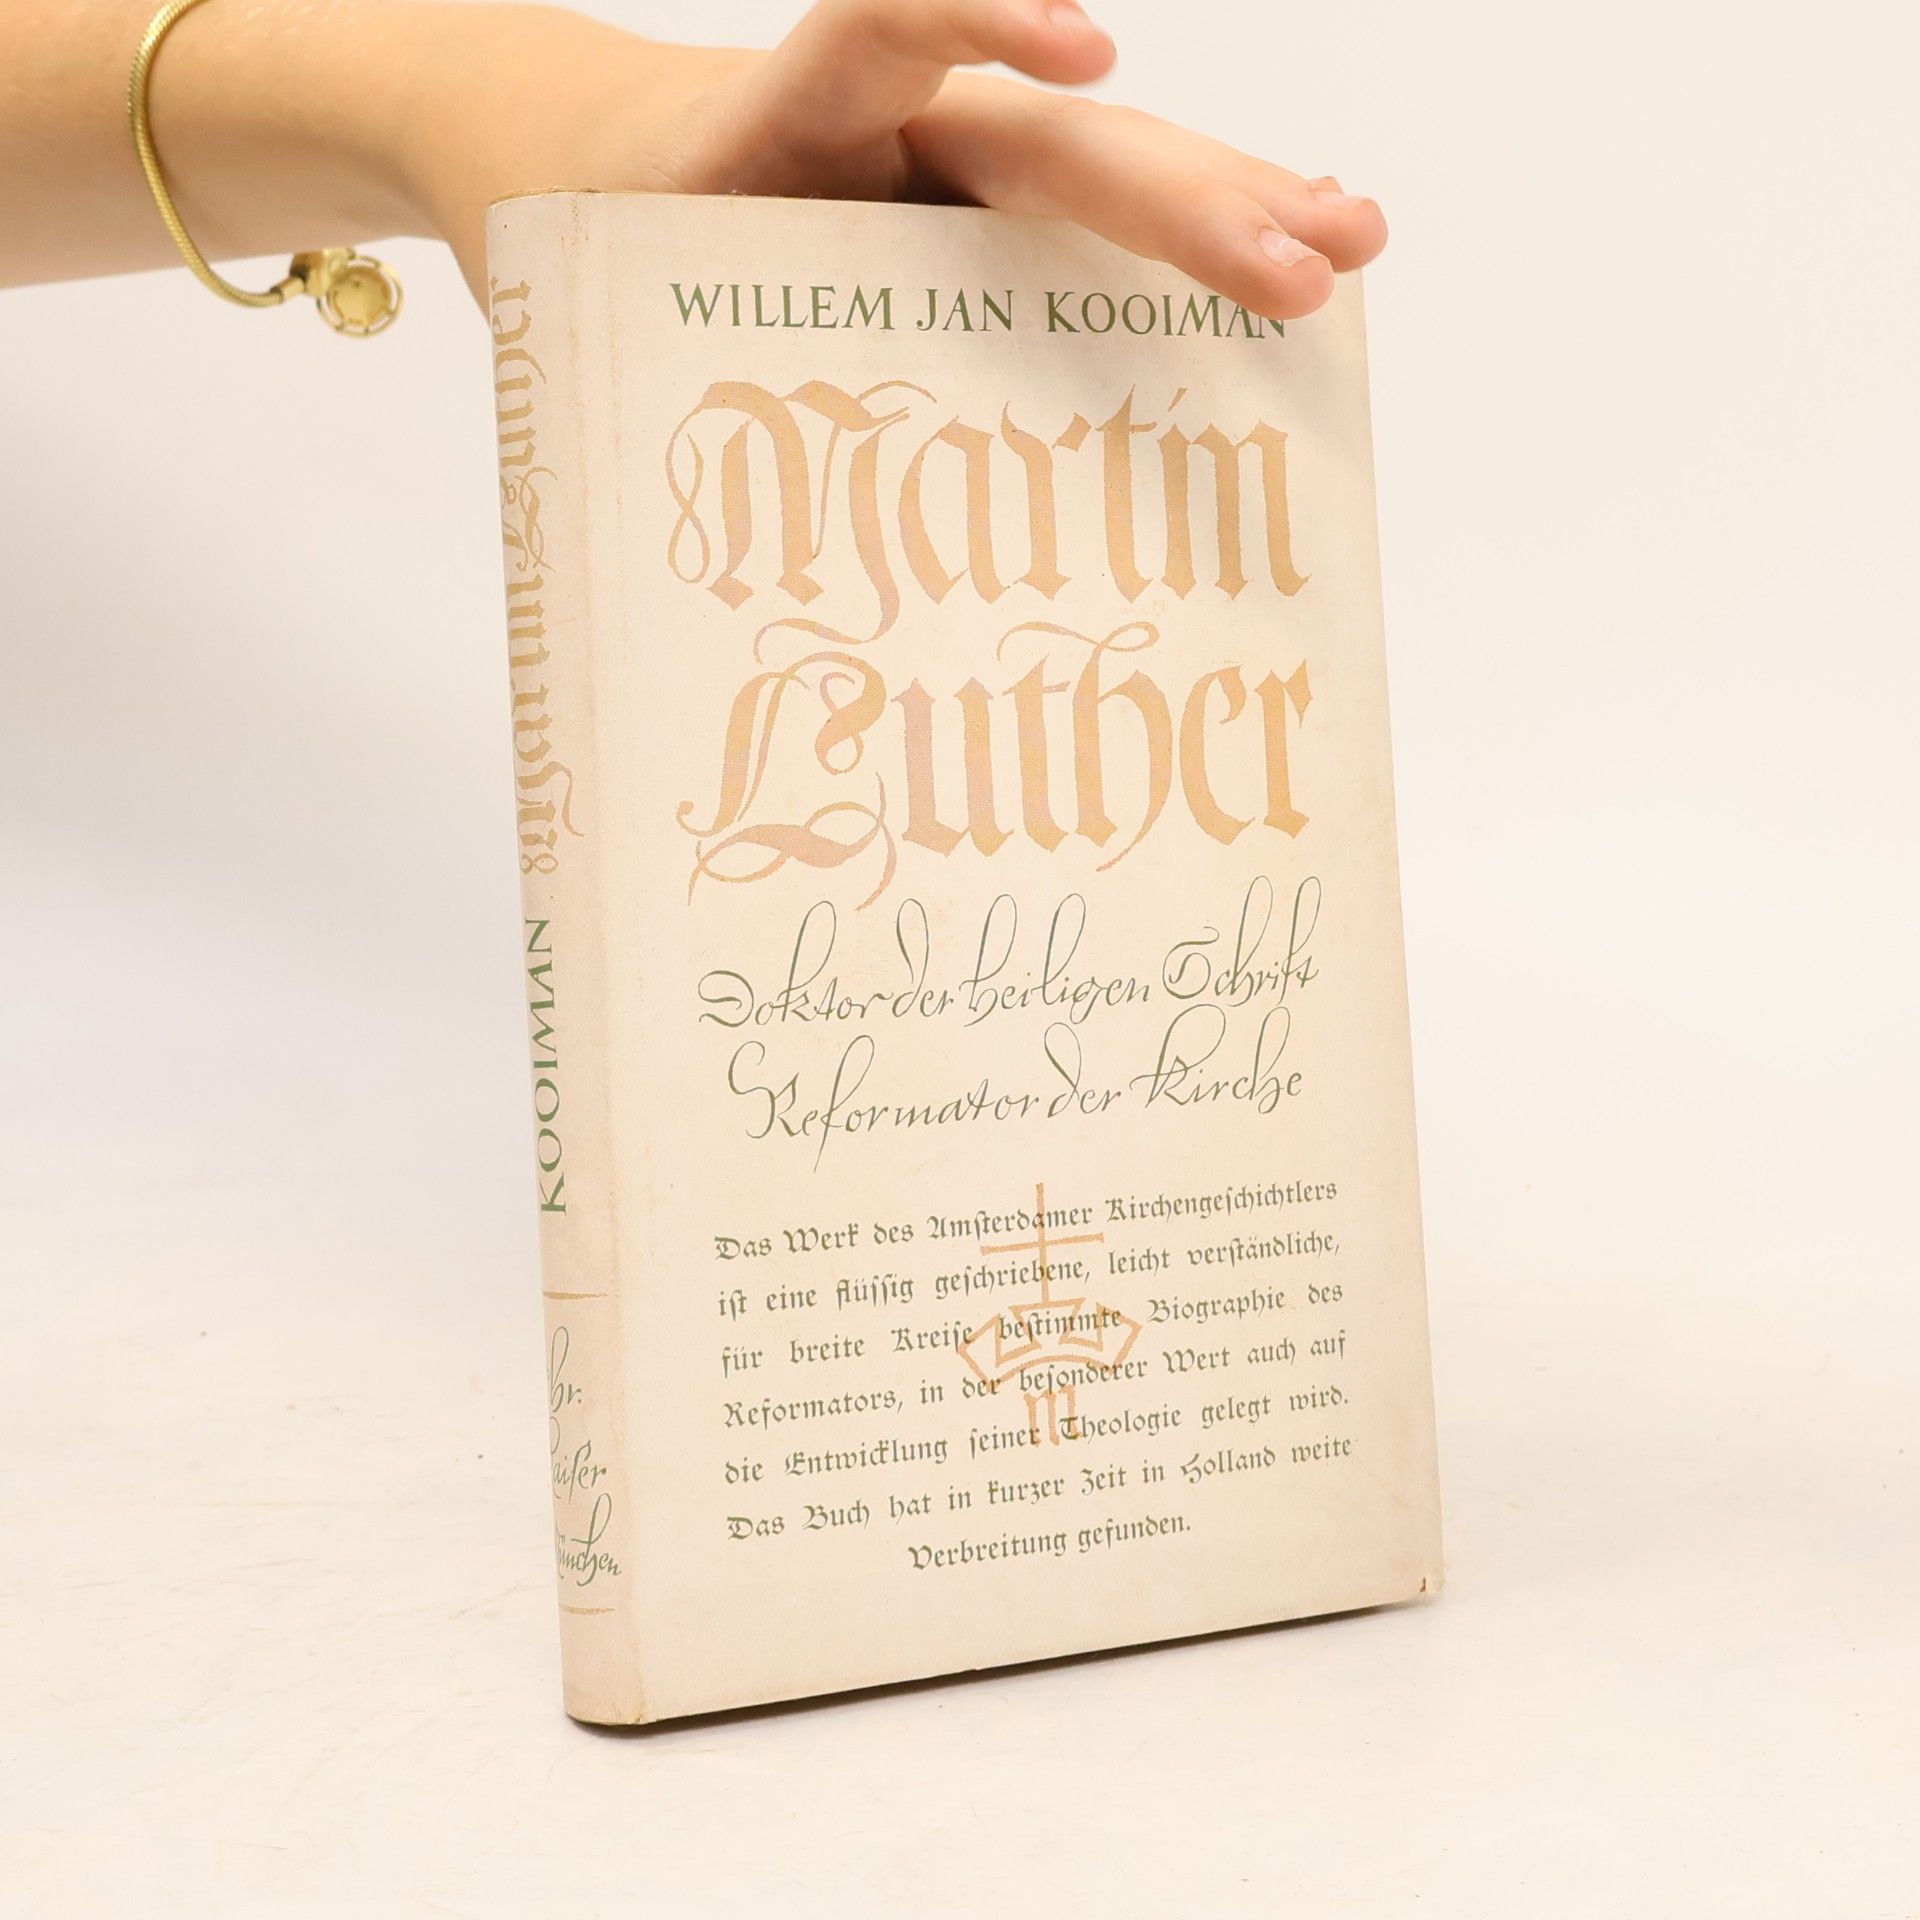 WILLEM JAN KOOIMAN
Martin
Luther
Doktor der heiligen Schrift
Reformator der Kirche
Das Werk des Amſterdamer Kirchengeſchichtlers
iſt eine flüſſig geſchriebene, leicht verſtändliche,
für breite Kreiſe beſtimmte Biographie des
Reformators, in der beſonderer Wert auch auf
die Entwicklung ſeiner Theologie gelegt wird.
Das Buch hat in kurzer Zeit in Holland weite
Verbreitung gefunden.
m
KOOIMAN Martin Luther
Chr.
Kaiſer
München